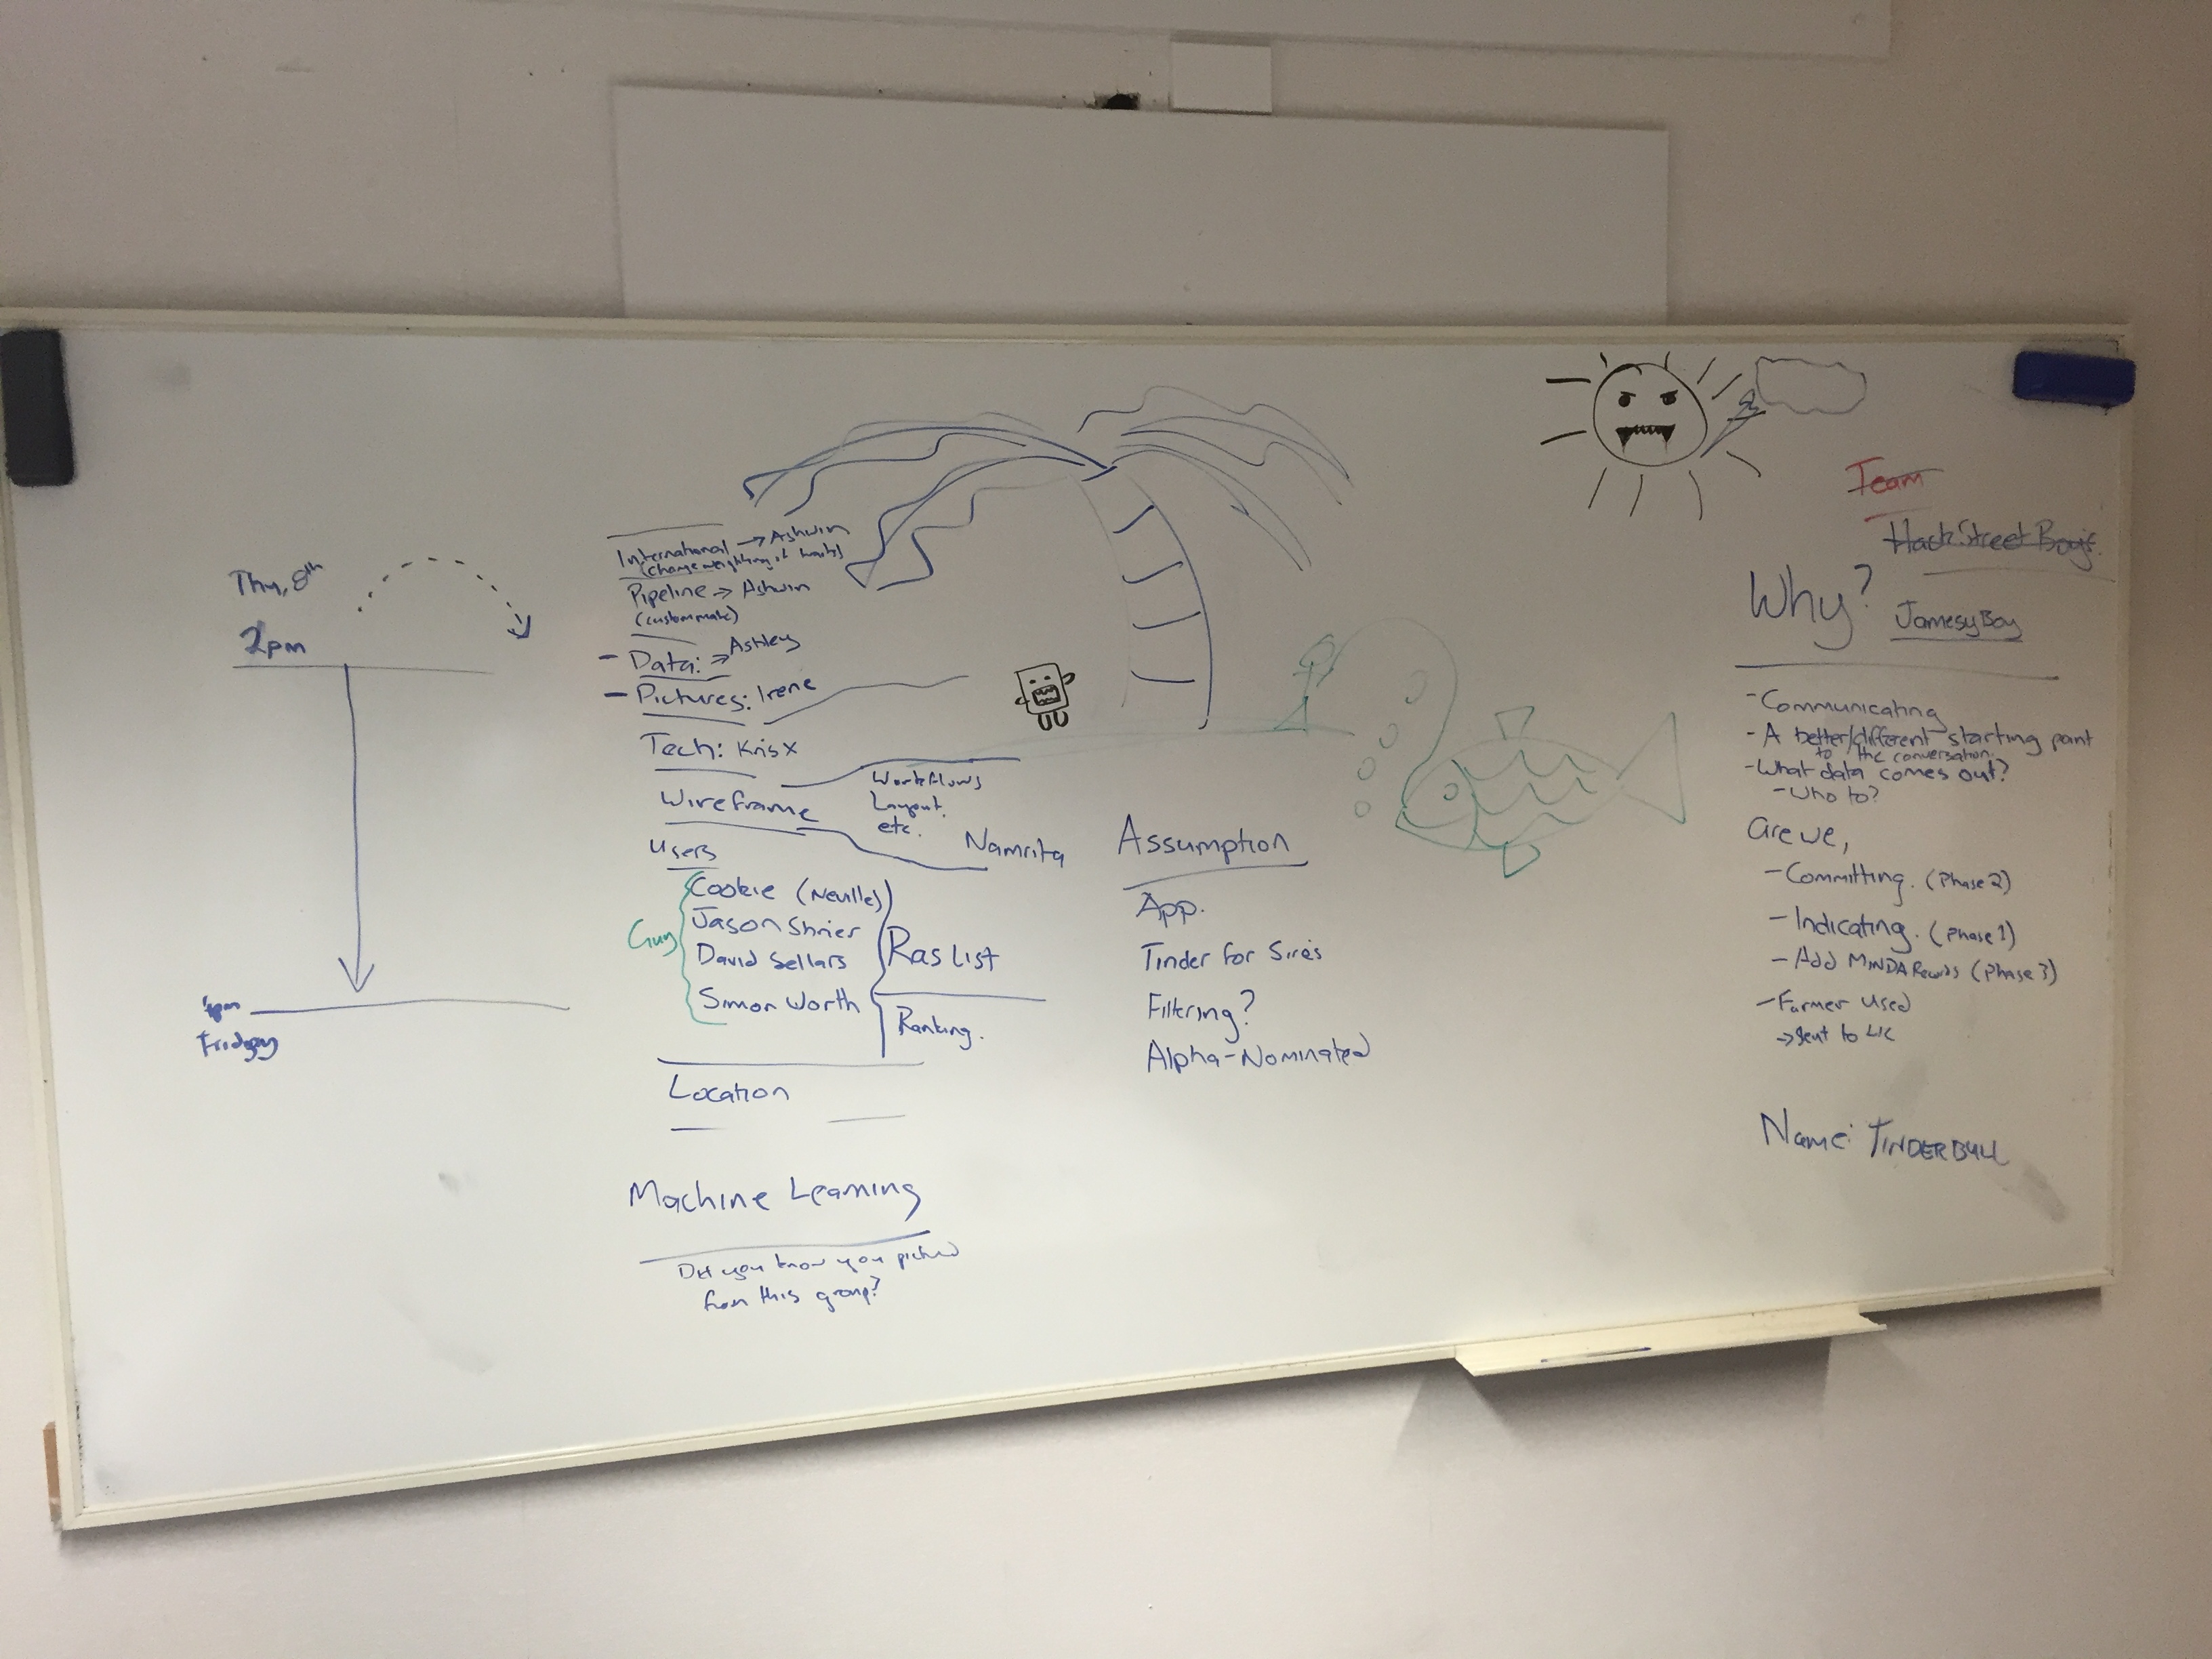 Thu, 8th
2pm
4pm
Friday
International → Ashwin
(change weighting of traits)
Pipeline → Ashwin
(custom mate)
- Data: → Ashley
- Pictures: Irene
Tech: Kris x
Wireframe
Workflows
Layout.
etc.
Namrita
Users
Guy
Cookie (Neville)
Jason Shrier
David Sellars
Simon Worth
Ras List
Ranking.
Location
Machine Learning
Did you know you picked
from this group?
Assumption
App.
Tinder for Sires
Filtering?
Alpha-Nominated
Team
Hack Street Boys.
Why?
JamesyBoy
- Communicating
- A better/different starting point
to the conversation.
- What data comes out?
- Who to?
are we,
- Committing. (Phase 2)
- Indicating. (Phase 1)
- Add MINDA Records (Phase 3)
- Farmer Used
→ Sent to LIC
Name: TINDERBULL